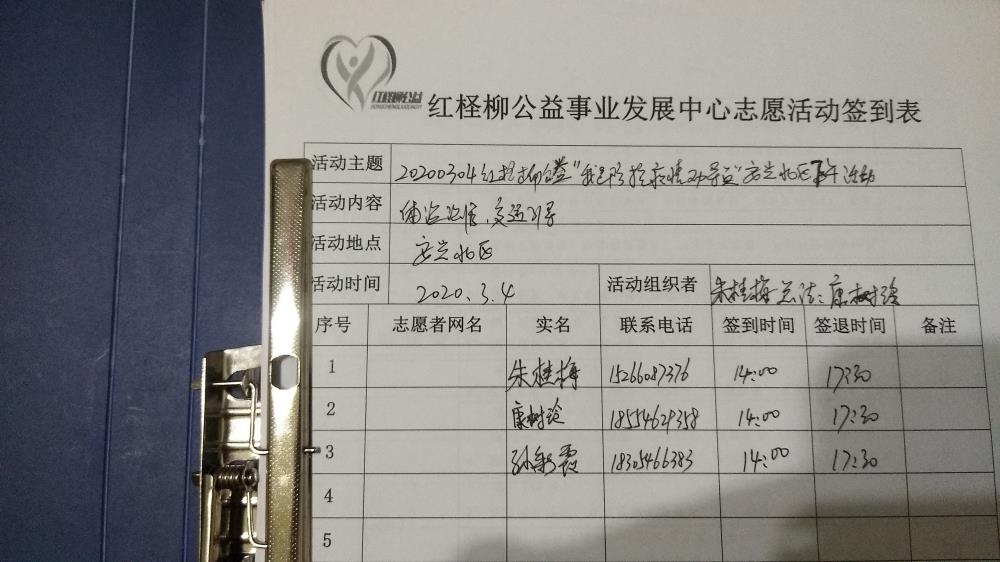 红柽柳公益
红柽柳公益事业发展中心志愿活动签到表
活动主题 20200304红柽柳公益"我是防控疫情劝导员"安兴北区下午活动
活动内容 体温监测、交通引导
活动地点 安兴北区
活动时间 2020.3.4 活动组织者 朱桂梅 康树玲
序号 志愿者网名 实名 联系电话 签到时间 签退时间 备注
1 朱桂梅 15266087376 14:00 17:30
2 康树玲 18554629358 14:00 17:30
3 孙彩霞 18305466383 14:00 17:30
4
5